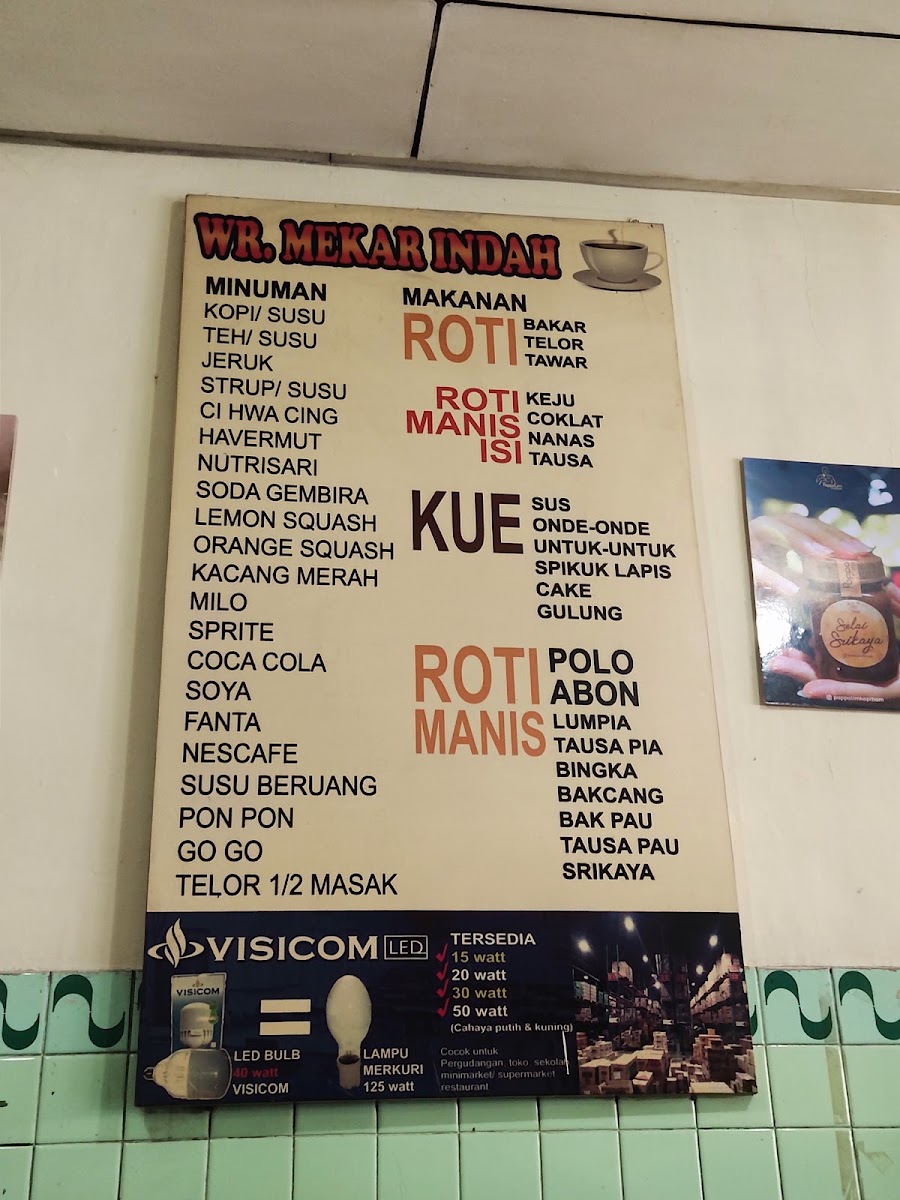 WR. MEKAR INDAH
MINUMAN
KOPI/ SUSU
TEH/ SUSU
JERUK
STRUP/ SUSU
CI HWA CING
HAVERMUT
NUTRISARI
SODA GEMBIRA
LEMON SQUASH
ORANGE SQUASH
KACANG MERAH
MILO
SPRITE
COCA COLA
SOYA
FANTA
NESCAFE
SUSU BERUANG
PON PON
GO GO
TELOR 1/2 MASAK
MAKANAN
ROTI
BAKAR
TELOR
TAWAR
ROTI
MANIS
ISI
KEJU
COKLAT
NANAS
TAUSA
KUE
SUS
ONDE-ONDE
UNTUK-UNTUK
SPIKUK LAPIS
CAKE
GULUNG
ROTI
MANIS
POLO
ABON
LUMPIA
TAUSA PIA
BINGKA
BAKCANG
BAK PAU
TAUSA PAU
SRIKAYA
VISICOM LED
VISICOM
LED BULB
40 watt
VISICOM
=
LAMPU
MERKURI
125 watt
TERSEDIA
15 watt
20 watt
30 watt
50 watt
(Cahaya putih & kuning)
Cocok untuk
Pergudangan, toko, sekolah
minimarket/ supermarket
restaurant
Selai
Srikaya